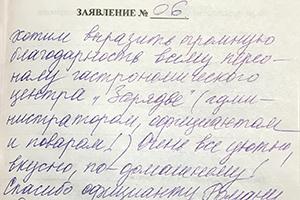 ЗАЯВЛЕНИЕ № 06
Хотим выразить громную
благодарность всему персо-
налу гастрономического
центра „Зарядье" (адми-
нистраторам, официантам
и поварам!) Очень все уютно,
вкусно, по-домашнему!
Спасибо официанту